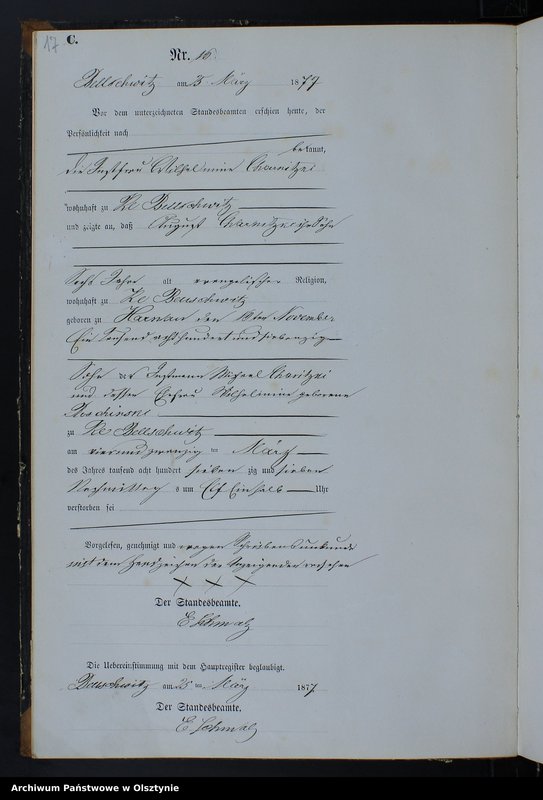 17 C.
Nr. 16.
Bellschwitz am 25 März 1877
Vor dem unterzeichneten Standesbeamten erschien heute, der
Persönlichkeit nach
bekannt,
die Instfrau Wilhelmine
wohnhaft zu Kl Bellschwitz
und zeigte an, daß August ihr Sohn
Sechs Jahre alt evangelischer Religion,
wohnhaft zu Kl Bellschwitz
geboren zu den November
Ein Tausend achthundert und siebenzig
Sohn des Instmann Michael
und dessen Ehefrau Wilhelmine geborene
zu Kl Bellschwitz
am vier und zwanzig ten März
des Jahres tausend acht hundert sieben zig und sieben
Nachmittag s um Elf Einhalb Uhr
verstorben sei
Vorgelesen, genehmigt und wegen Schreibensunkunde
mit dem Handzeichen der Anzeigenden versehen
x x x
Der Standesbeamte.
E Schmalz
Die Uebereinstimmung mit dem Hauptregister beglaubigt.
Bellschwitz am 25 ten März 1877
Der Standesbeamte.
E Schmalz
Archiwum Państwowe w Olsztynie